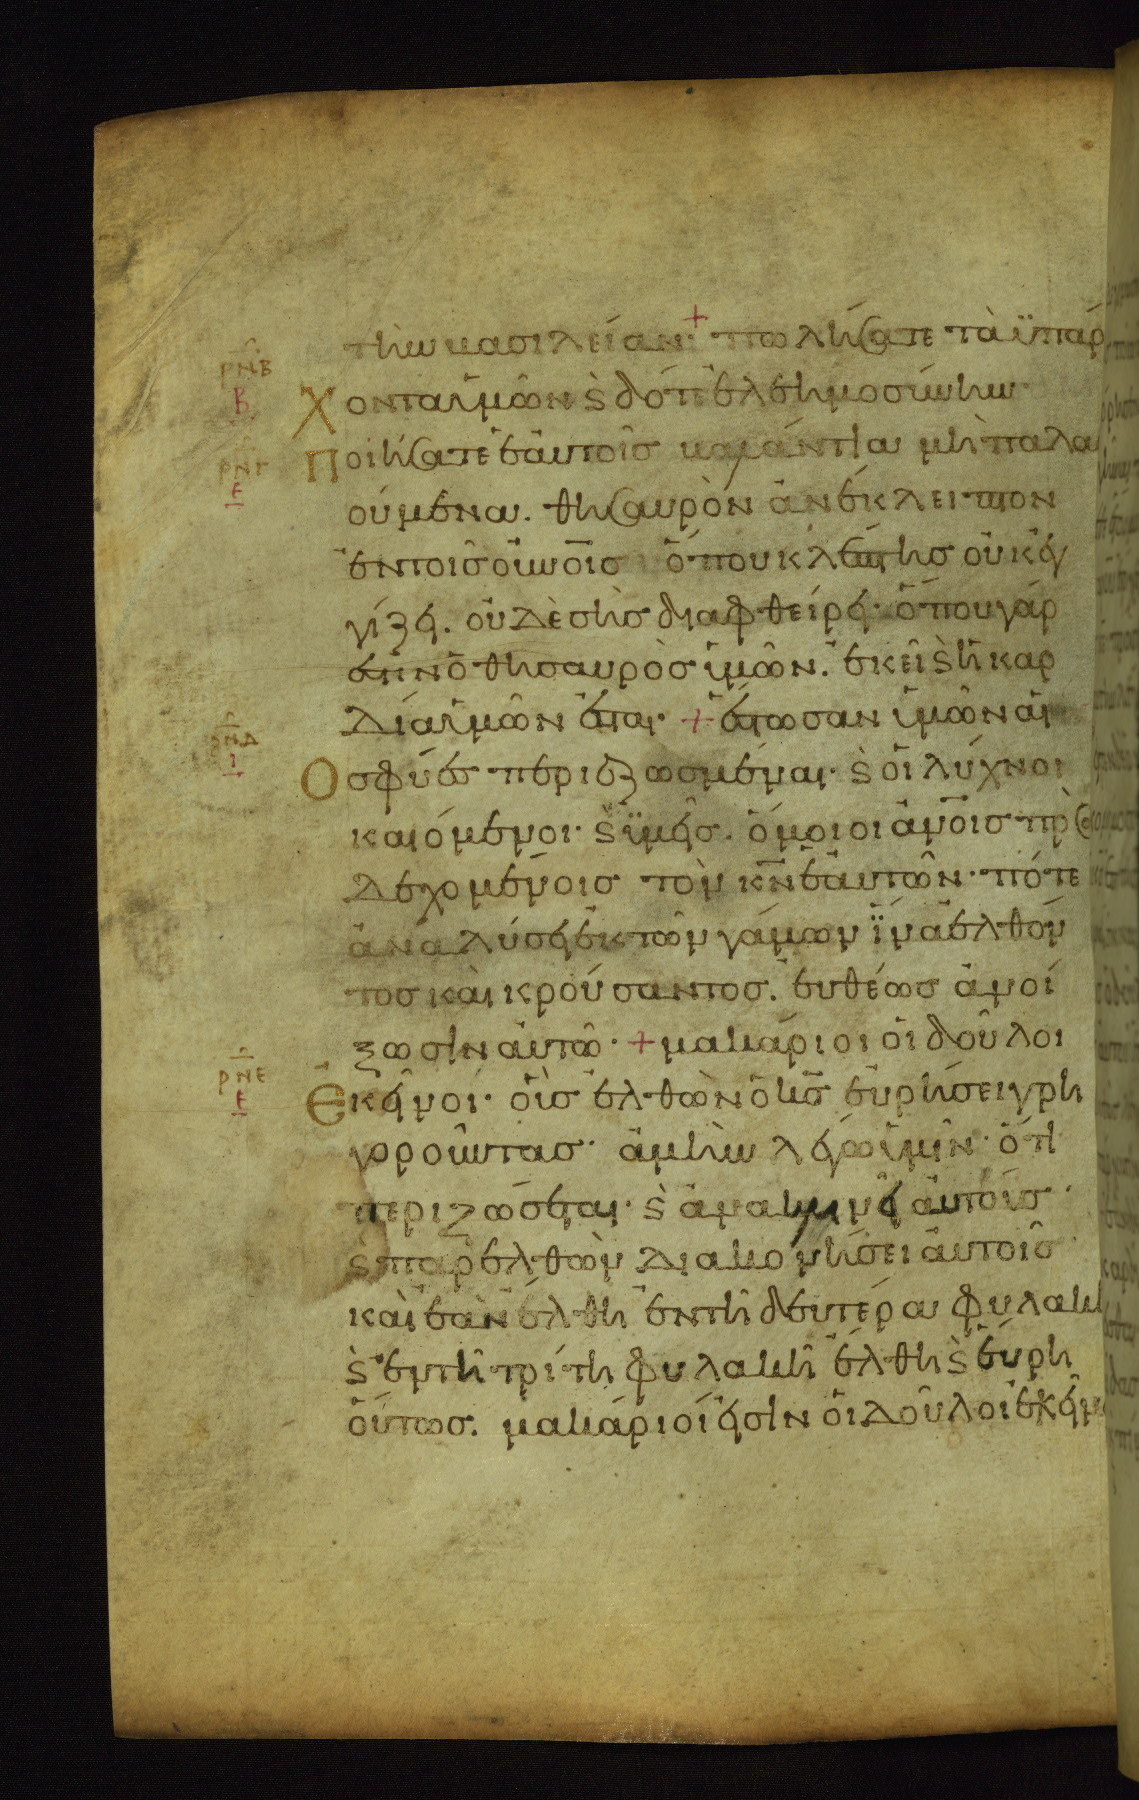 τὴν βασιλείαν· + πωλήσατε τὰ ϋπάρ
ρνβ
Β
χοντα ὑμῶν ϗ δότε ἐλεημοσύνην·
ρνγ
Ε
ποιήσατε ἑαυτοῖς βαλάντια μὴ παλαι
ούμενα. θησαυρὸν ἀνέκλειπτον
ἐν τοῖς οὐνοῖς ὅπου κλέπτης οὐκ ἐγ
γίζει. οὐδὲ σὴς διαφθείρει· ὅπου γάρ
ἐστιν ὁ θησαυρὸς ὑμῶν. ἐκεῖ ϗ ἡ καρ
δία ὑμῶν ἔσται· + ἔστωσαν ὑμῶν αἱ
ρνδ
Ι
ὀσφύες περιεζωσμέναι· ϗ οἱ λύχνοι
καιόμενοι· ϗ ϋμεῖς. ὅμοιοι ἀνοῖς προσ
δεχομένοις τὸν κν ἑαυτῶν· πότε
ἀναλύσει ἐκ τῶν γάμων ἵνα ἐλθόν
τος καὶ κρούσαντος. εὐθέως ἀνοί
ξωσιν αὐτῶ· + μακάριοι οἱ δοῦλοι
ρνε
Ε
ἐκεῖνοι· οὓς ἐλθὼν ὁ κς εὑρήσει γρη
γοροῦντας· ἀμὴν λέγω ὑμῖν· ὅτι
περιζώσεται· ϗ ἀνακλινεῖ αὐτούς·
ϗ παρελθὼν διακονήσει αὐτοῖς·
καὶ ἐὰν ἔλθη ἐν τῆ δευτέρα φυλακῆ
ϗ ἐν τῆ τρίτη φυλακῆ ἔλθη ϗ εὕρη
οὕτως. μακάριοί εἰσιν οἱ δοῦλοι ἐκεῖνοι